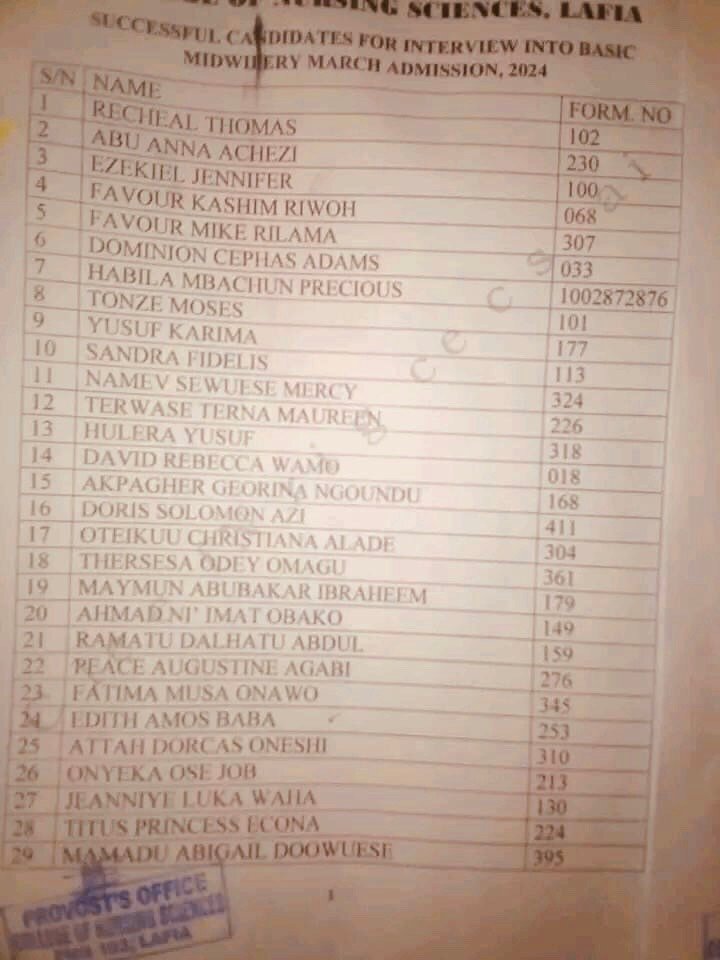 OF NURSING SCIENCES, LAFIA
SUCCESSFUL CANDIDATES FOR INTERVIEW INTO BASIC
MIDWIFERY MARCH ADMISSION, 2024
S/N NAME FORM. NO
1 RECHEAL THOMAS 102
2 ABU ANNA ACHEZI 230
3 EZEKIEL JENNIFER 100
4 FAVOUR KASHIM RIWOH 068
5 FAVOUR MIKE RILAMA 307
6 DOMINION CEPHAS ADAMS 033
7 HABILA MBACHUN PRECIOUS 1002872876
8 TONZE MOSES 101
9 YUSUF KARIMA 177
10 SANDRA FIDELIS 113
11 NAMEV SEWUESE MERCY 324
12 TERWASE TERNA MAUREEN 226
13 HULERA YUSUF 318
14 DAVID REBECCA WAMO 018
15 AKPAGHER GEORINA NGOUNDU 168
16 DORIS SOLOMON AZI 411
17 OTEIKUU CHRISTIANA ALADE 304
18 THERSESA ODEY OMAGU 361
19 MAYMUN ABUBAKAR IBRAHEEM 179
20 AHMAD NI' IMAT OBAKO 149
21 RAMATU DALHATU ABDUL 159
22 PEACE AUGUSTINE AGABI 276
23 FATIMA MUSA ONAWO 345
24 EDITH AMOS BABA 253
25 ATTAH DORCAS ONESHI 310
26 ONYEKA OSE JOB 213
27 JEANNIYE LUKA WAHA 130
28 TITUS PRINCESS ECONA 224
29 MAMADU ABIGAIL DOOWUESE 395
1
PROVOST'S OFFICE
COLLEGE OF NURSING SCIENCES
LAFIA